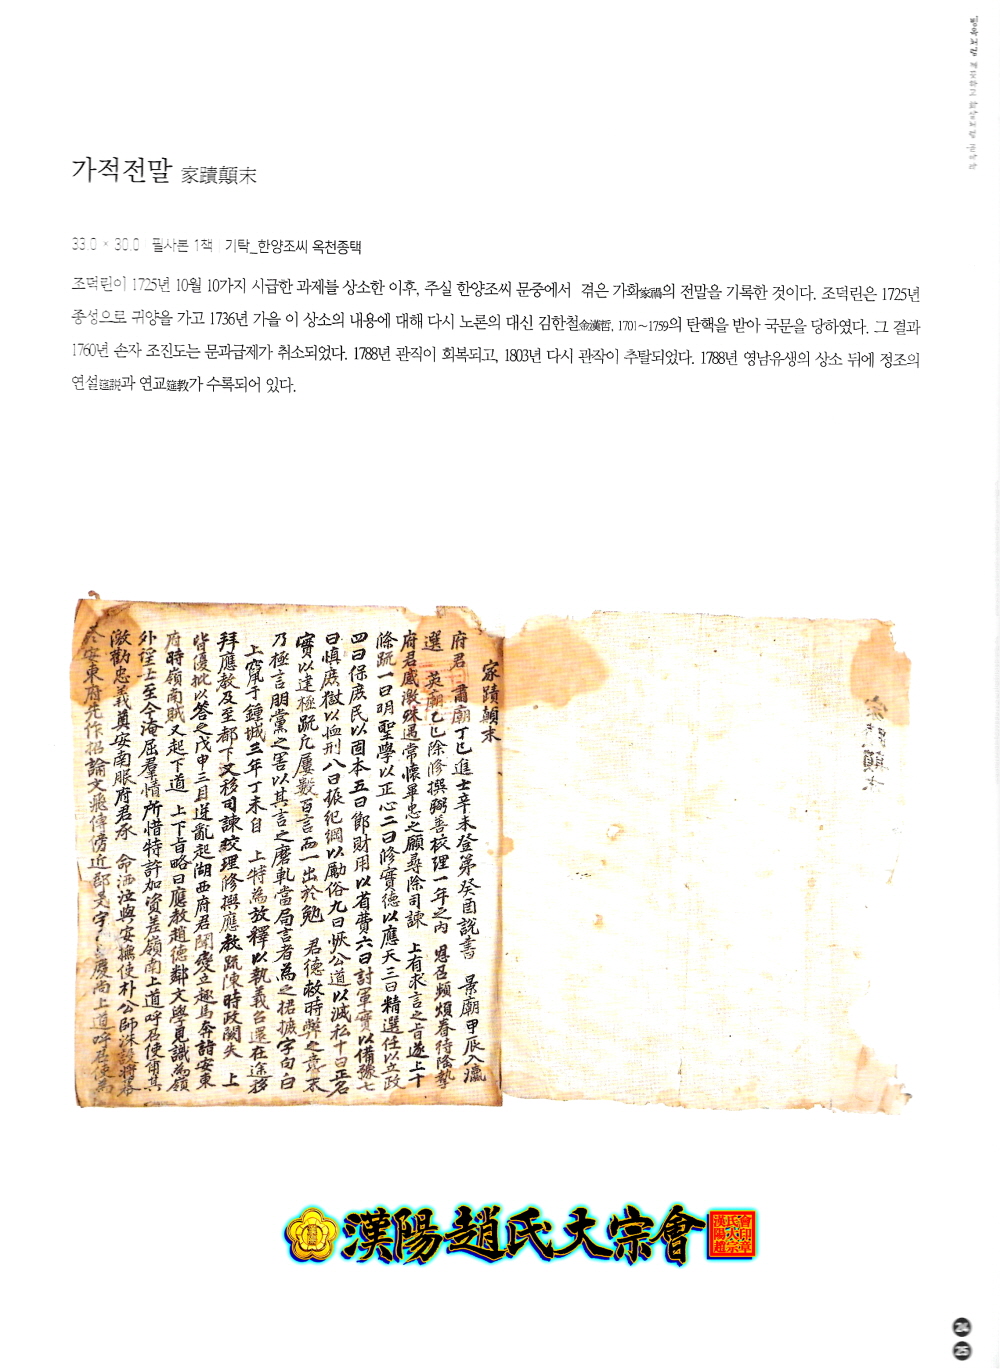 가적전말 家蹟顚末
33.0 × 30.0 | 필사본 1책 | 기탁_한양조씨 옥천종택
조덕린이 1725년 10월 10가지 시급한 과제를 상소한 이후, 주실 한양조씨 문중에서 겪은 가화家禍의 전말을 기록한 것이다. 조덕린은 1725년
종성으로 귀양을 가고 1736년 가을 이 상소의 내용에 대해 다시 노론의 대신 김한철金漢喆, 1701~1759의 탄핵을 받아 국문을 당하였다. 그 결과
1760년 손자 조진도는 문과급제가 취소되었다. 1788년 관직이 회복되고, 1803년 다시 관작이 추탈되었다. 1788년 영남유생의 상소 뒤에 정조의
연설筵說과 연교筵敎가 수록되어 있다.
家蹟顚末
府君 肅廟丁巳進士辛未登第癸酉說書 景廟甲辰入瀛
選 英廟乙巳除修撰弼善校理一年之內 恩召頻煩眷待隆摯
府君感激殊遇常懷畢忠之願尋除司諫 上有求言之旨遂上十
條疏一曰明聖學以正心二曰修實德以應天三曰精選任以立政
四曰保庶民以固本五曰節財用以省費六曰討軍實以備豫七
曰愼庶獄以恤刑八曰振紀綱以勵俗九曰恢公道以滅私十曰正名
實以建極疏凡屢數百言而一出於勉 君德救時弊之意末
乃極言朋黨之害以其言之磨軋當局言者爲之捃摭字句白
上竄于鍾城三年丁未自 上特爲放釋以執義召還在途移
拜應敎及至都下又移司諫校理修撰應敎疏陳時政闕失 上
皆優批以答之戊申三月逆亂起湖西府君聞變立趣馬奔詣安東
府時嶺南賊又起下道 上下旨略曰應敎趙德鄰文學見識爲嶺
外徑士至今淹屈羣情所惜特許加資差嶺南上道呼召使爾其
激勸忠義奠安南服府君承 命洒泣與安撫使朴公師洙設將幕
於安東府先作招諭文飛傳傍近郡 慶尙上道呼召使爲
家蹟顚末
漢陽趙氏大宗會
24
25